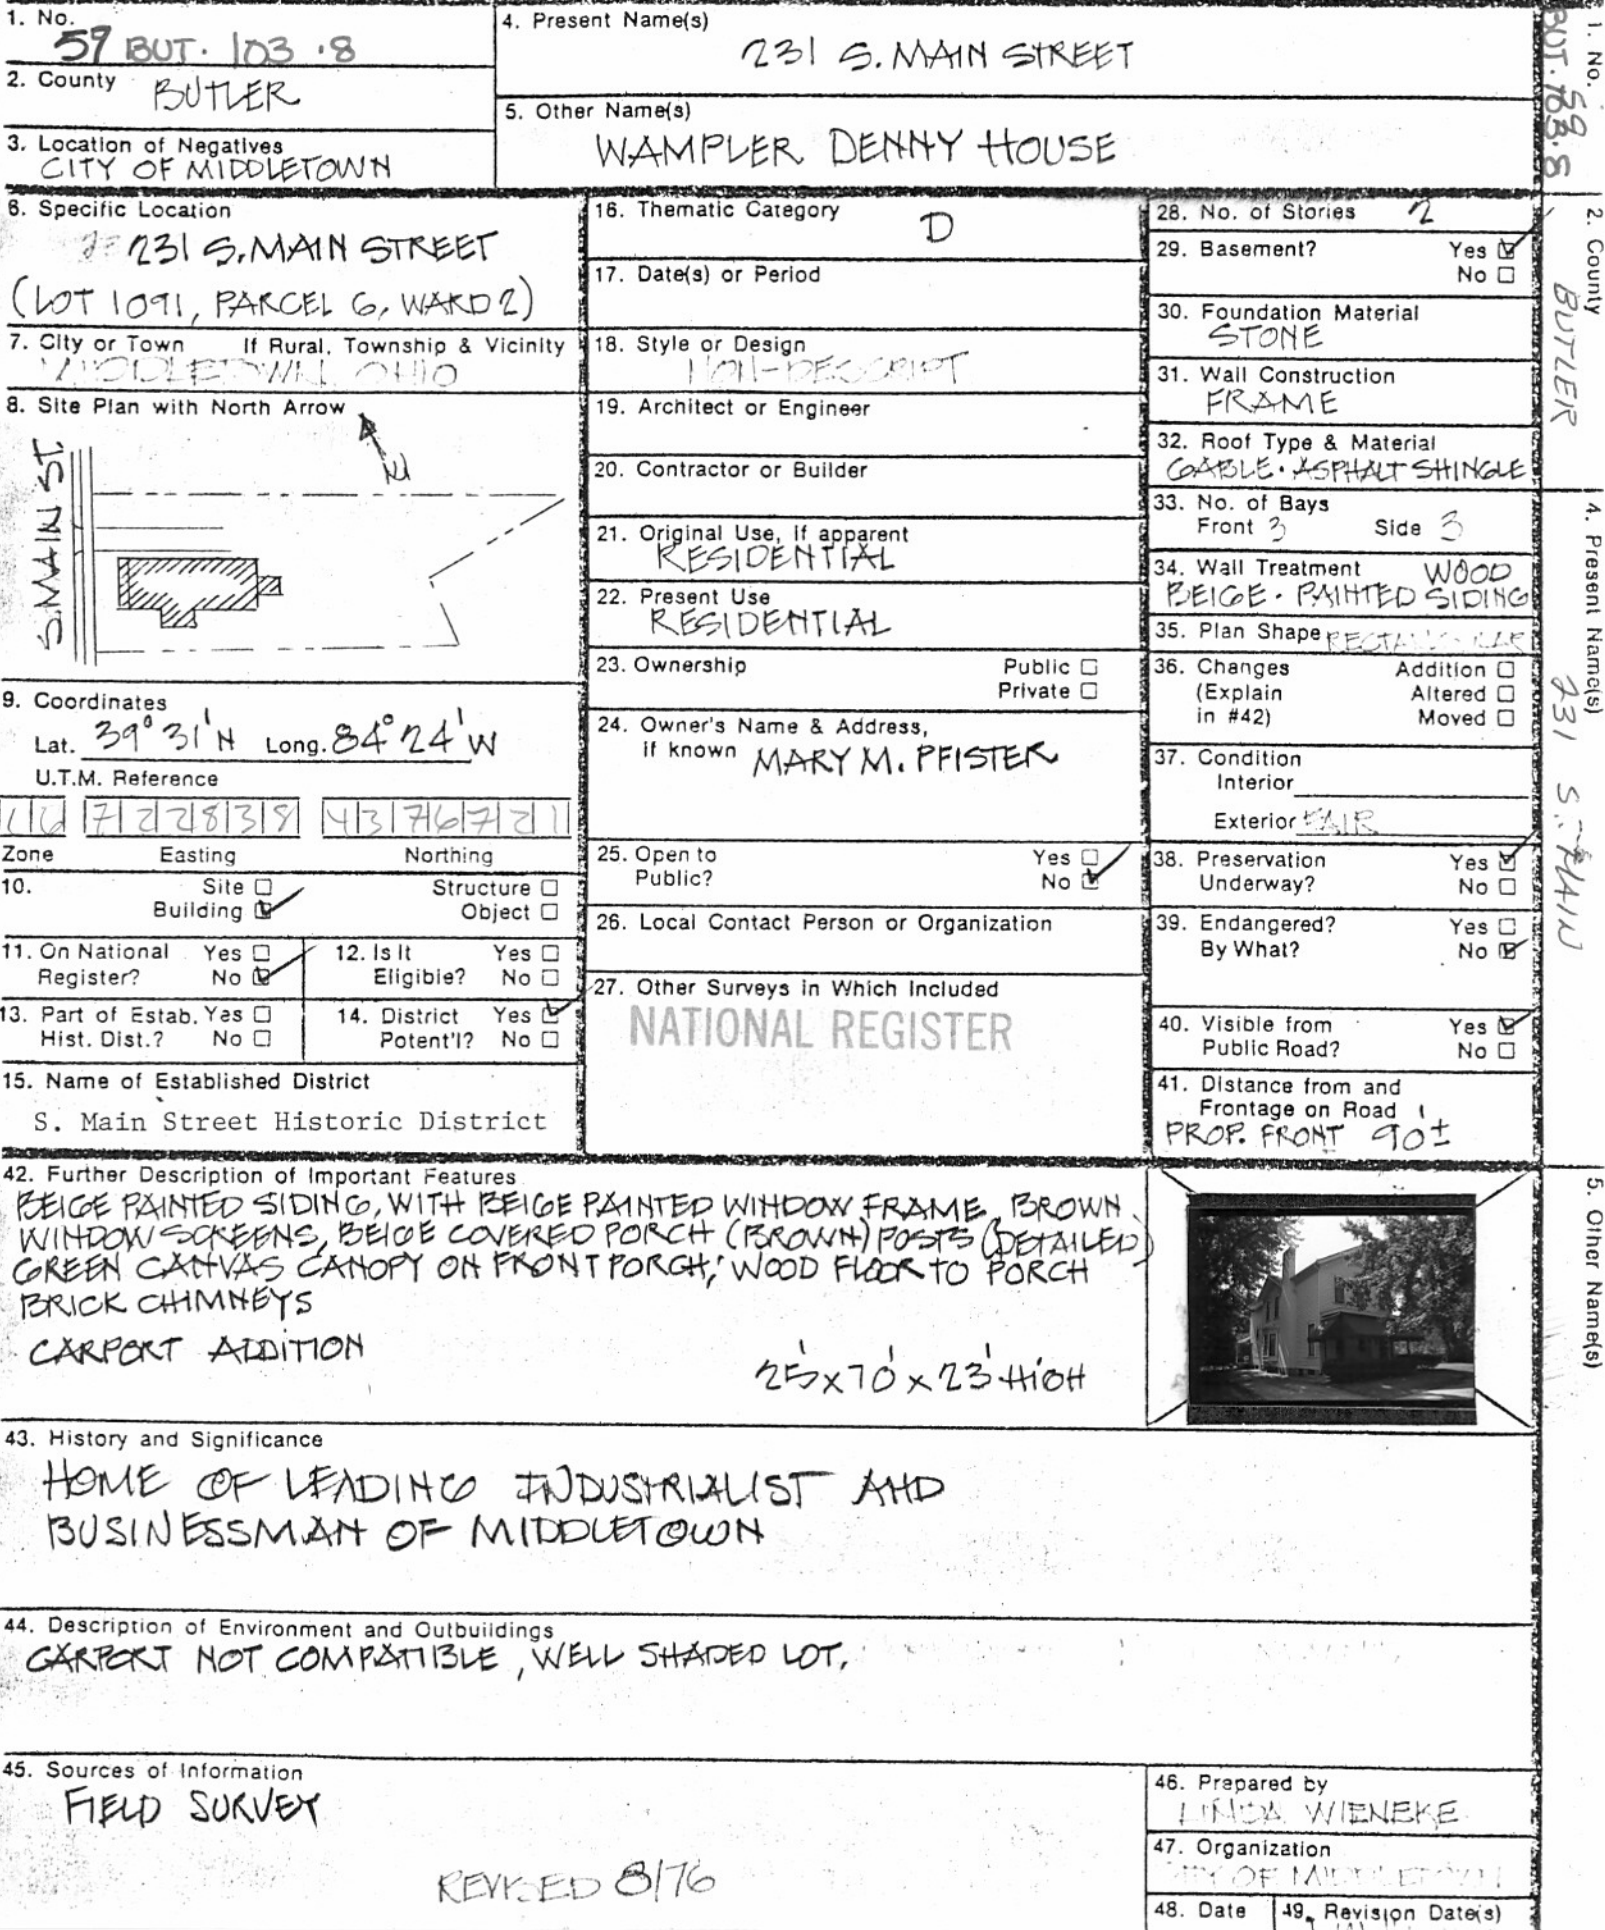 1. No.
59 BUT. 103 .8
2. County BUTLER
3. Location of Negatives
CITY OF MIDDLETOWN
4. Present Name(s)
231 S. MAIN STREET
5. Other Name(s)
WAMPLER DENNY HOUSE
6. Specific Location
231 S. MAIN STREET
(LOT 1091, PARCEL 6, WARD 2)
7. City or Town If Rural, Township & Vicinity
MIDDLETOWN, OHIO
8. Site Plan with North Arrow
N
S. MAIN ST
9. Coordinates
Lat. 39° 31' N Long. 84° 24' W
U.T.M. Reference
16 722838 4376721
Zone Easting Northing
10. Site □ Structure □
Building ☑ Object □
11. On National Register? Yes □ No ☑
12. Is It Eligible? Yes □ No □
13. Part of Estab. Hist. Dist.? Yes □ No □
14. District Potent'l? Yes ☑ No □
15. Name of Established District
S. Main Street Historic District
16. Thematic Category D
17. Date(s) or Period
18. Style or Design
NON-DESCRIPT
19. Architect or Engineer
20. Contractor or Builder
21. Original Use, if apparent
RESIDENTIAL
22. Present Use
RESIDENTIAL
23. Ownership Public □
Private □
24. Owner's Name & Address,
if known MARY M. PFISTER
25. Open to Public? Yes □ No ☑
26. Local Contact Person or Organization
27. Other Surveys in Which Included
NATIONAL REGISTER
28. No. of Stories 2
29. Basement? Yes ☑
No □
30. Foundation Material
STONE
31. Wall Construction
FRAME
32. Roof Type & Material
GABLE · ASPHALT SHINGLE
33. No. of Bays
Front 3 Side 3
34. Wall Treatment WOOD
BEIGE · PAINTED SIDING
35. Plan Shape RECTANGULAR
36. Changes Addition □
(Explain Altered □
in #42) Moved □
37. Condition
Interior
Exterior FAIR
38. Preservation Yes ☑
Underway? No □
39. Endangered? Yes □
By What? No ☑
40. Visible from Yes ☑
Public Road? No □
41. Distance from and
Frontage on Road
PROP. FRONT 90'±
42. Further Description of Important Features
BEIGE PAINTED SIDING, WITH BEIGE PAINTED WINDOW FRAME, BROWN
WINDOW SCREENS, BEIGE COVERED PORCH (BROWN) POSTS (DETAILED)
GREEN CANVAS CANOPY ON FRONT PORCH; WOOD FLOOR TO PORCH
BRICK CHIMNEYS
CARPORT ADDITION
25' x 70' x 23' HIGH
43. History and Significance
HOME OF LEADING INDUSTRIALIST AND
BUSINESSMAN OF MIDDLETOWN
44. Description of Environment and Outbuildings
CARPORT NOT COMPATIBLE, WELL SHADED LOT.
45. Sources of Information
FIELD SURVEY
REVISED 8/76
46. Prepared by
LINDA WIENEKE
47. Organization
CITY OF MIDDLETOWN
48. Date
49. Revision Date(s)
1. No.
59
BUT. 103.8
2. County
BUTLER
4. Present Name(s)
231 S. MAIN
5. Other Name(s)